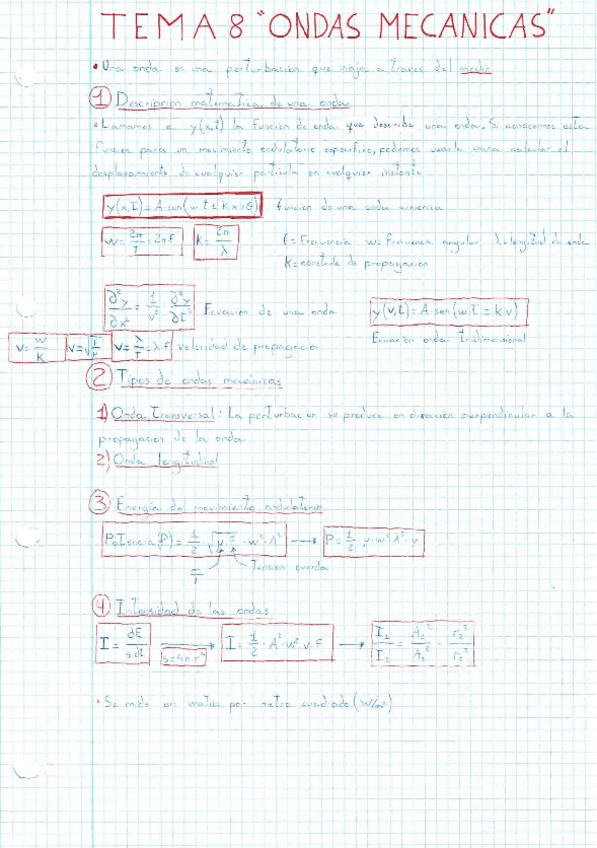 TEMA 8 "ONDAS MECANICAS"
• Una onda es una perturbacion que viaja a traves del medio
1 Descripcion matematica de una onda
• Llamamos a y(x,t) la funcion de onda que describe una onda. Si conocemos esta
funcion para un movimiento ondulatorio especifico, podemos usarla para calcular el
desplazamiento de cualquier particula en cualquier instante
y(x,t) = A·sen(wt ± Kx + θ) funcion de una onda
w = 2π/T = 2πf k = 2π/λ f = Frecuencia w = Frecuencia angular λ = longitud de onda
K = constante de propagacion
∂²y/∂x² = 1/v² · ∂²y/∂t² Ecuacion de una onda y(v,t) = A·sen(wt ± k·v)
Ecuacion ondas tridimensional
v = w/K v = λ/T = λ·f velocidad de propagacion
2 Tipos de ondas mecanicas
1) Onda Transversal: La perturbacion se produce en direccion perpendicular a la
propagacion de la onda
2) Onda longitudinal
3 Energia del movimiento ondulatorio
Potencia (P) = 1/2 · w² · A² → P = 1/2 · μ · w² · A² · v
Tension cuerda
m/l
4 Intensidad de las ondas
I = dE/s dt s = 4πr² → I = 1/2 · A² · w² · v · f →
• Se mide en watios por metro cuadrado (W/m²)